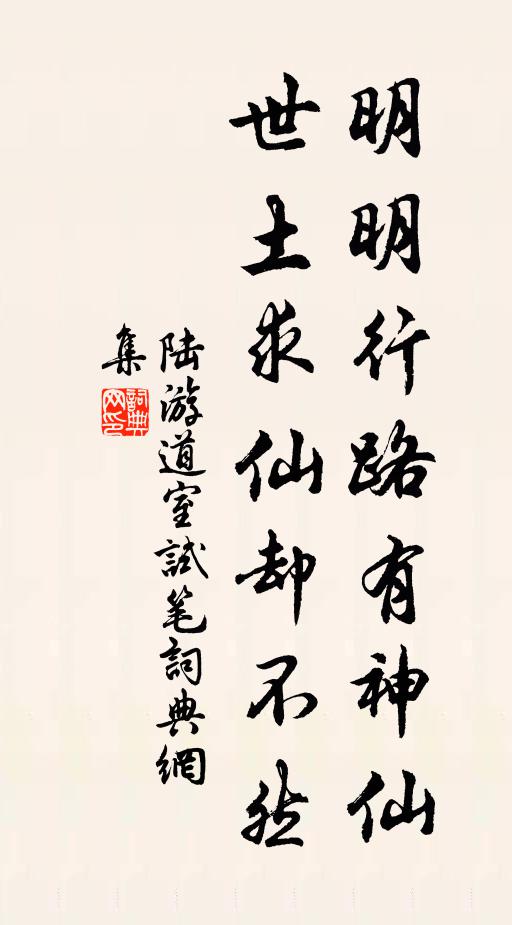 明明行路有神仙
世土求仙却不然
陆游道室試笔詞典網
集
詞典
网印